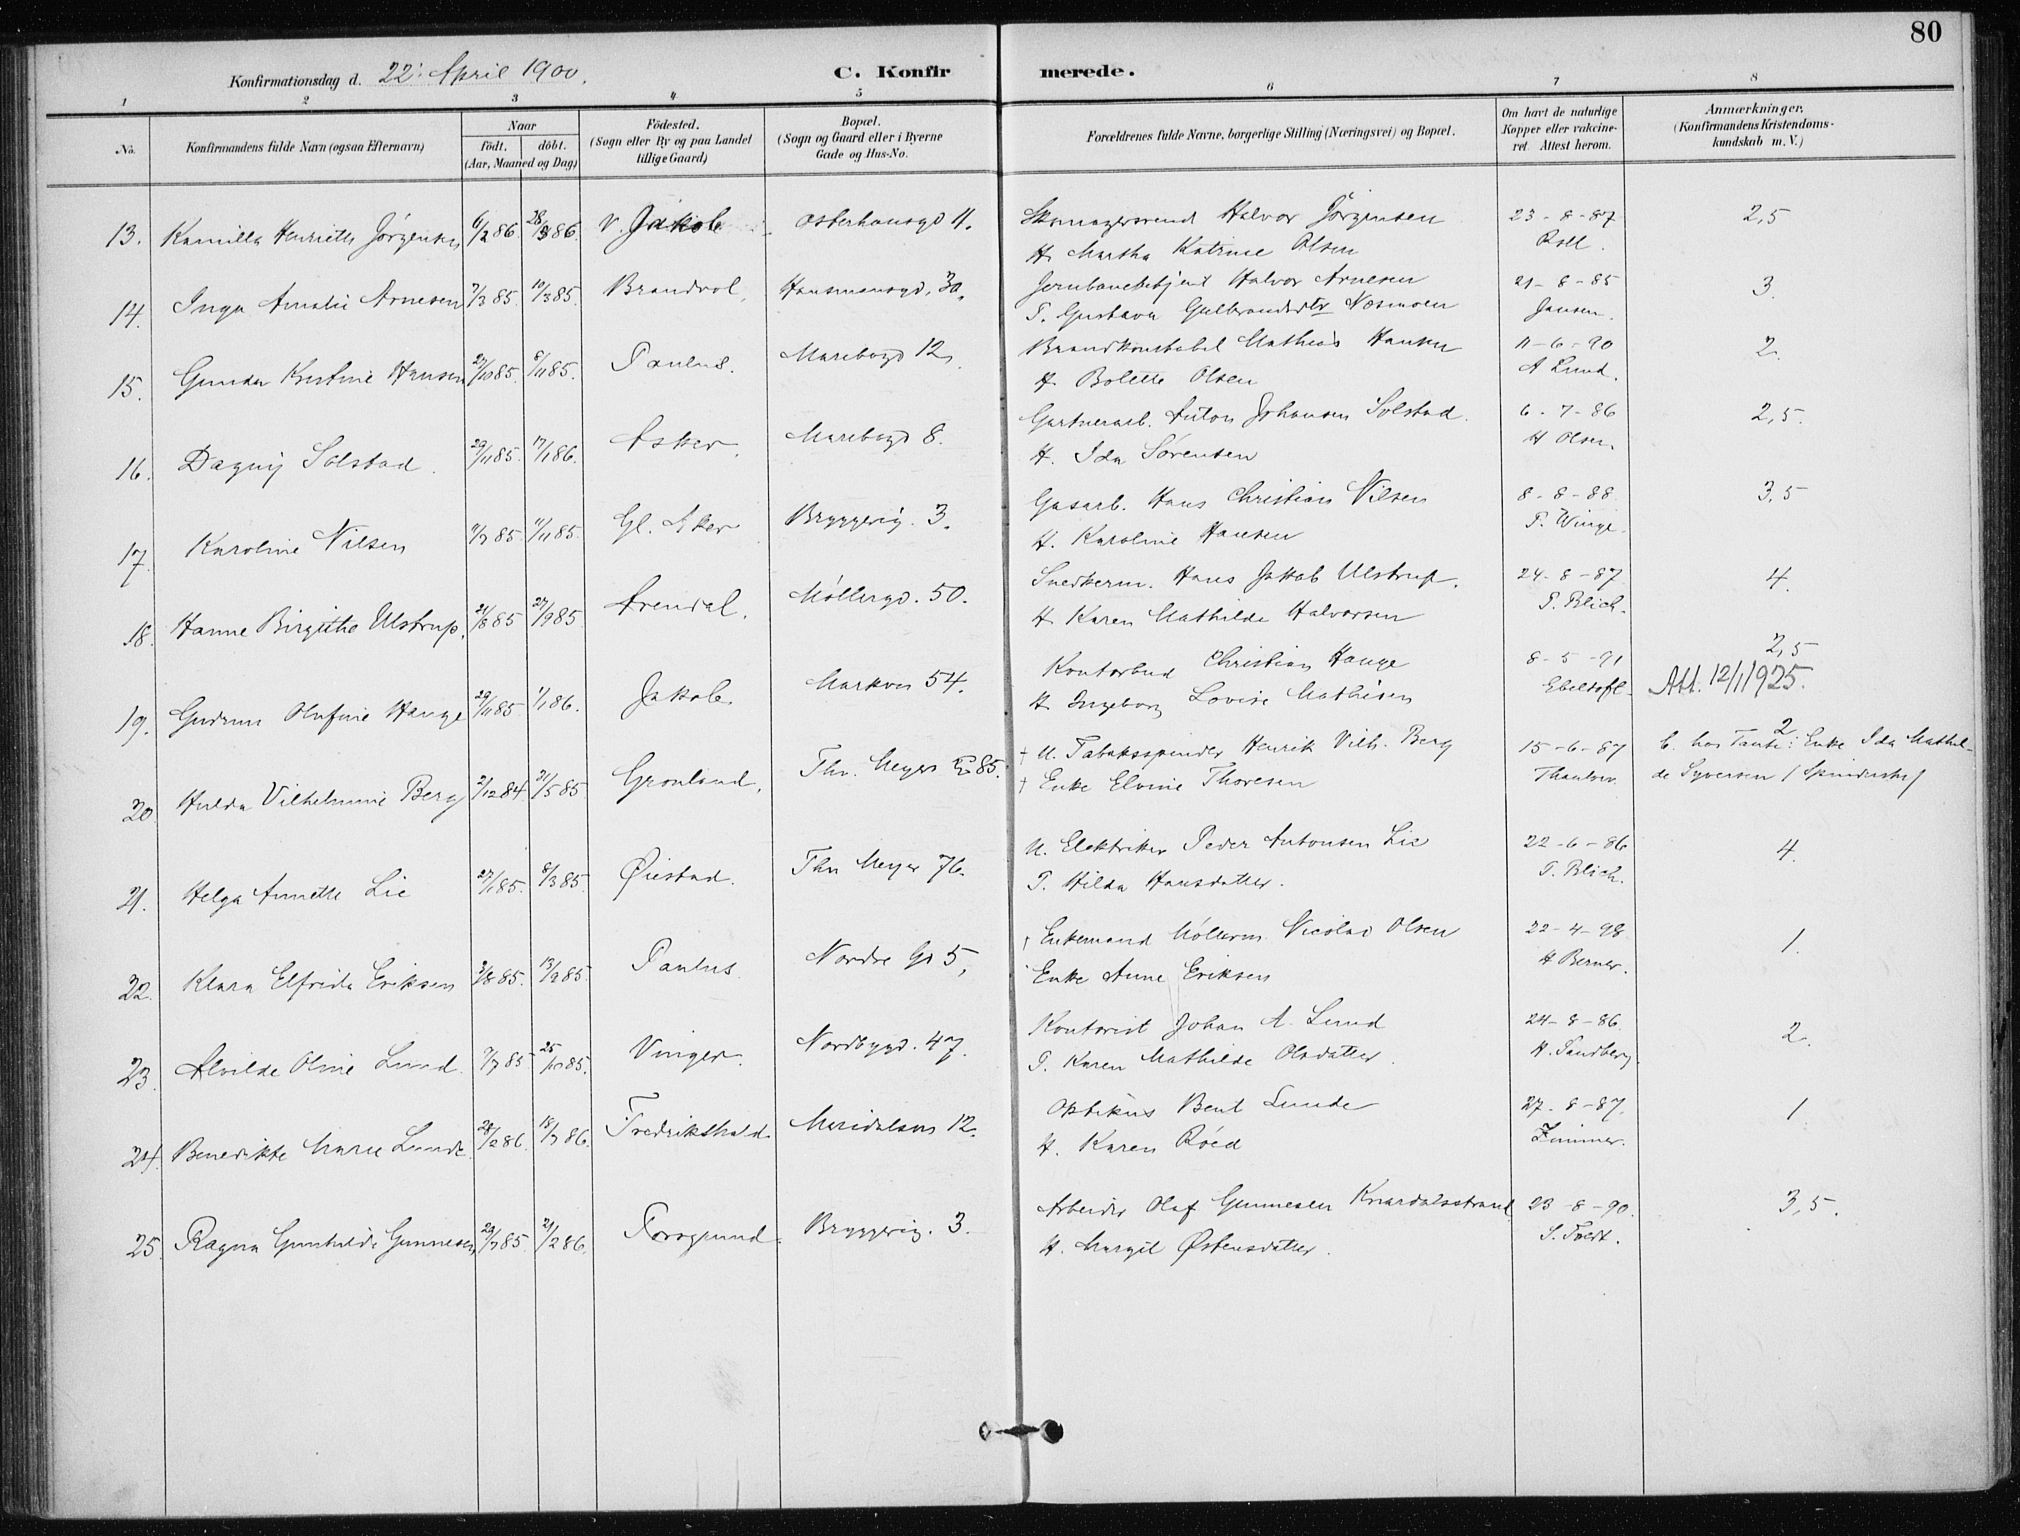 80
Konfirmationsdag d. 22: April 1900. C. Konfirmerede.
1 2 3 4 5 6 7 8
No.
Konfirmandens fulde Navn (ogsaa Efternavn)
Naar
födt. döbt.
(Aar, Maaned og Dag)
Födested.
(Sogn eller By og paa Landet
tillige Gaard)
Bopæl.
(Sogn og Gaard eller i Byerne
Gade og Hus-No.
Forældrenes fulde Navne, borgerlige Stilling (Næringsvei) og Bopæl.
Om havt de naturlige
Kopper eller vakcine-
ret. Attest herom.
Anmærkninger.
(Konfirmandens Kristendoms-
kundskab m. V.)
13. Kamilla Henriette Jörgensen 6/2 86. 28/3 86. V. Jakob Osterhausgd 11. Skomagersvend Halvor Jörgensen 23-8-87 2,5
H. Martha Katrine Olsen Roll.
14. Inga Amalie Arnesen 7/3 85. 10/3 85. Brandvol. Hausmansgd. 30. Jernbanebetjent Halvor Arnesen 21-8-85 3.
P. Gustava Gulbrandsdtr Nesmoen Jansen.
15. Gunda Kristine Hansen 27/10 85. 8/11 85. Paulus. Marebogd 12. Brandkonstabel Mathias Hansen 11-6-90 2.
H. Bolette Olsen A Lund.
16. Dagny Solstad. 29/11 85. 17/1 86. Asker. Marebogd 8. Gartnerarb. Anton Johansen Solstad. 6-7-86 2,5.
H. Ida Sørensen H Olsen.
17. Karoline Nilsen 9/7 85. 1/11 85. Gl. Aker Bryggerig. 3. Gasarb. Hans Christian Nilsen 8-8-88 3,5
H. Karoline Hansen P. Winge.
18. Hanne Birgithe Ulstrup. 21/8 85 27/9 85 Arendal. Möllergd. 50. Snedkerm. Hans Jakob Ulstrup. 24-8-87 4.
H. Karen Mathilde Halvorsen P. Blich.
19. Gudrun Olufine Hauge 29/11 85. 1/1 86. Jakob. Markvn 54. Kontorbud Christian Hauge 8-5-91 2,5
H. Ingeborg Lovise Mathisen Ebeltoft. Att. 12/1 1925.
20. Hulda Vilhelmine Berg 2/12 84 21/5 85 Grønland. Thv. Meyers Gd 85. † U. Tabaksspinder Henrik Vilh. Berg 15-6-87 2
b. hos Tante: Enke Ida Mathil-
† Enke Elvine Thoresen Thaulow. de Syversen (Spinderske)
21. Helga Annette Lie 27/1 85. 8/3 85. Øiestad. Thv Meyer 76. U. Elektriker Peder Antonsen Lie 22-6-86 4.
P. Hilda Hansdatter. P. Blich.
22. Klara Elfrida Eriksen 3/8 85. 13/9 85. Paulus. Nordre Gd 5, Enkemand Møllerm. Nicolai Olsen 22-4-98 1.
Enke Anne Eriksen H Berner.
23. Alvilde Oline Lund. 7/7 85 25/10 85. Vinger. Nordbygd. 47. Kontorist Johan A. Lund 24-8-86. 2.
P. Karen Mathilde Olsdatter. H. Sandberg.
24. Benedikte Marie Lunde 28/2 86. 18/7 86. Fredrikshald Maridalsvn 12. Optikus Bent Lunde 27-8-87. 1.
H. Karen Röed Zimmer.
25. Ragna Gunhilda Gunnesen 29/7 85. 21/2 86. Porsgrund. Bryggerig. 3. Arbeider Olaf Gunnesen Knardalsstrand 23-8-90. 3,5.
H. Margit Østensdatter. S. Tvedt.